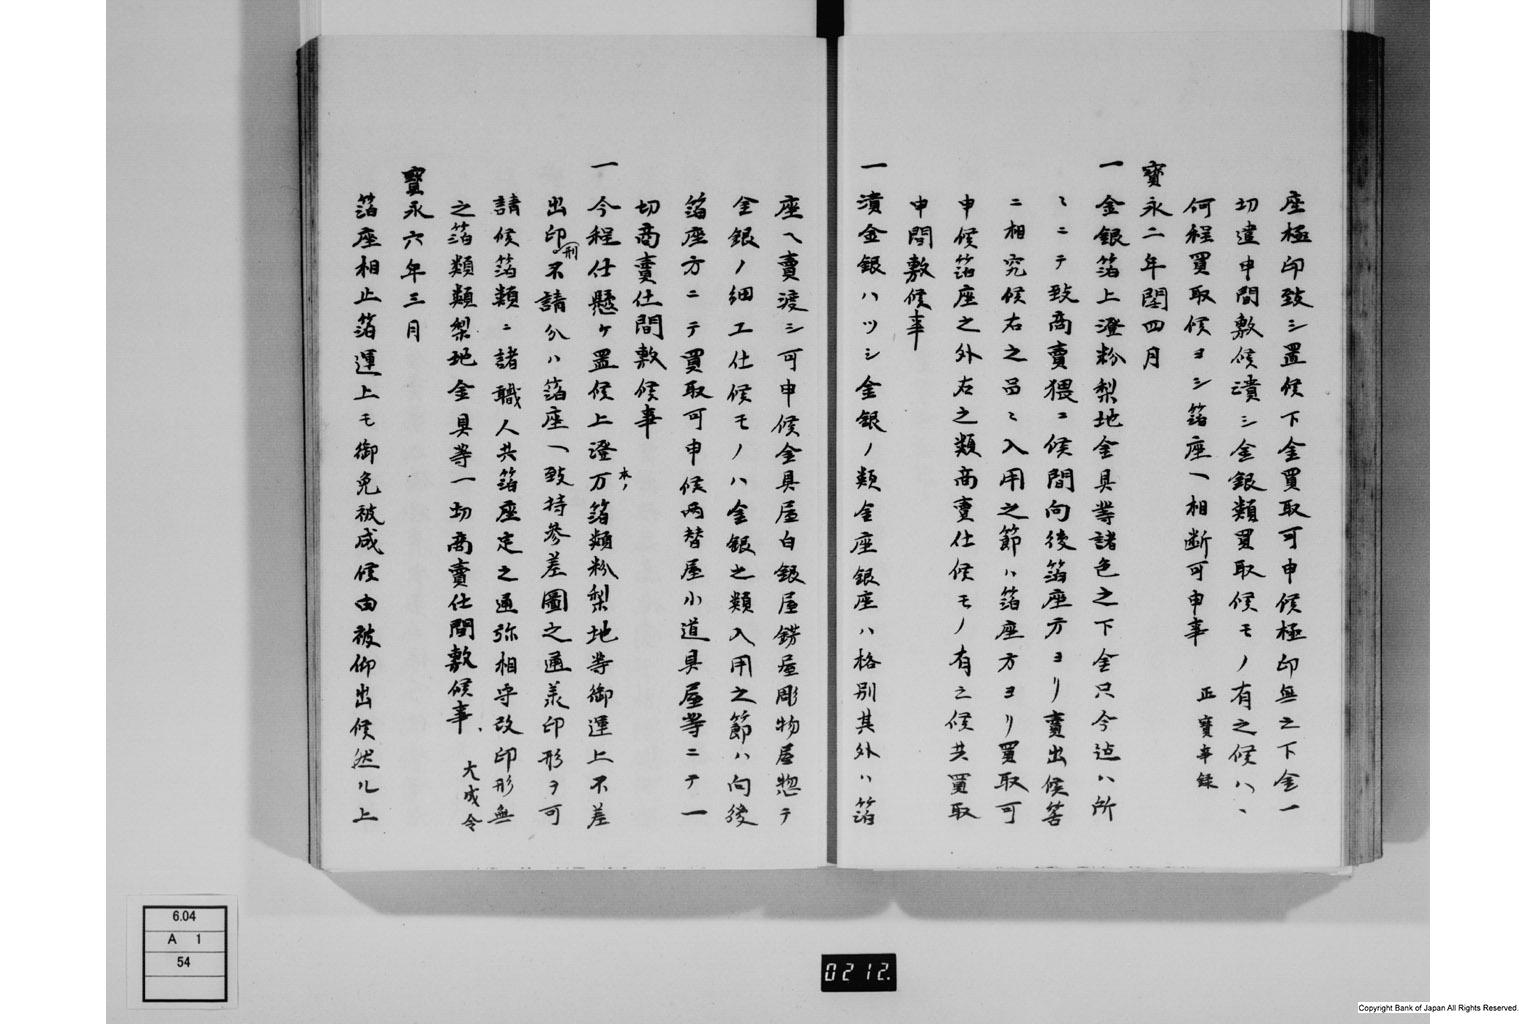 座極印致シ置候下金買取可申候極印無之下金一
切遣申間敷候潰シ金銀類買取候モノ有之候ハヽ
何程買取候ヨシ箔座ヘ相断可申事 正寳事録
寳永二年閏四月
一金銀箔上澄粉梨地金具等諸色之下金只今迠ハ所
ミニテ致商賣猥ニ候間向後箔座方ヨリ賣出候筈
ニ相究候右之品ミ入用之節ハ箔座方ヨリ買取可
申候箔座之外右之類商賣仕候モノ有之候共買取
申間敷候事
一潰金銀ハツシ金銀ノ類金座銀座ハ格別其外ハ箔
座ヘ賣渡シ可申候金具屋白銀屋錺屋彫物屋惣テ
金銀ノ細工仕候モノハ金銀之類入用之節ハ向後
箔座方ニテ買取可申候両替屋小道具屋等ニテ一
切商賣仕間敷候事
一今程仕懸ケ置候上澄万本ノ箔類粉梨地等御運上不差
出印刑不請分ハ箔座ヘ致持参差圖之通義印形ヲ可
請候箔類ニ諸職人共箔座定之通弥相守改印形無
之箔類類梨地金具等一切商賣仕間敷候事、 大成令
寳永六年三月
箔座相止箔運上モ御免被成候由被仰出候然ル上
6.04
A 1
54
0212.
Copyright Bank of Japan All Rights Reserved.